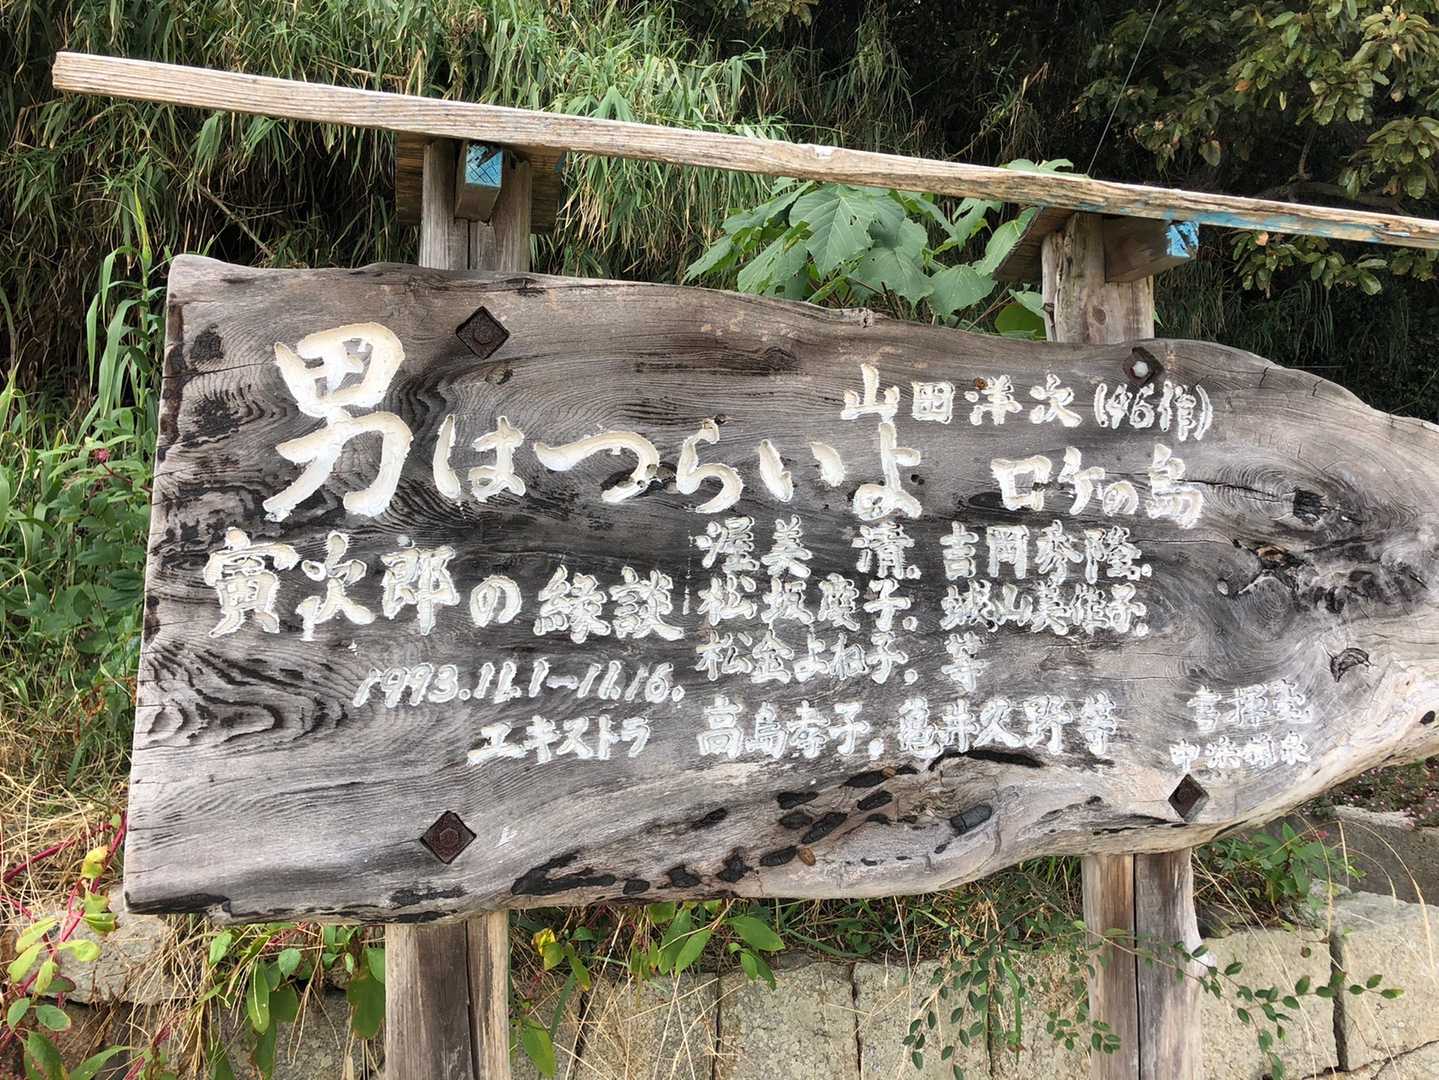 山田洋次(46作)
男はつらいよ ロケの島
寅次郎の縁談
渥美 清. 吉岡秀隆.
松坂慶子. 城山美佳子.
松金よね子. 等
1993.11.1−11.16.
エキストラ 高島幸子. 亀井久野等
書揮毫